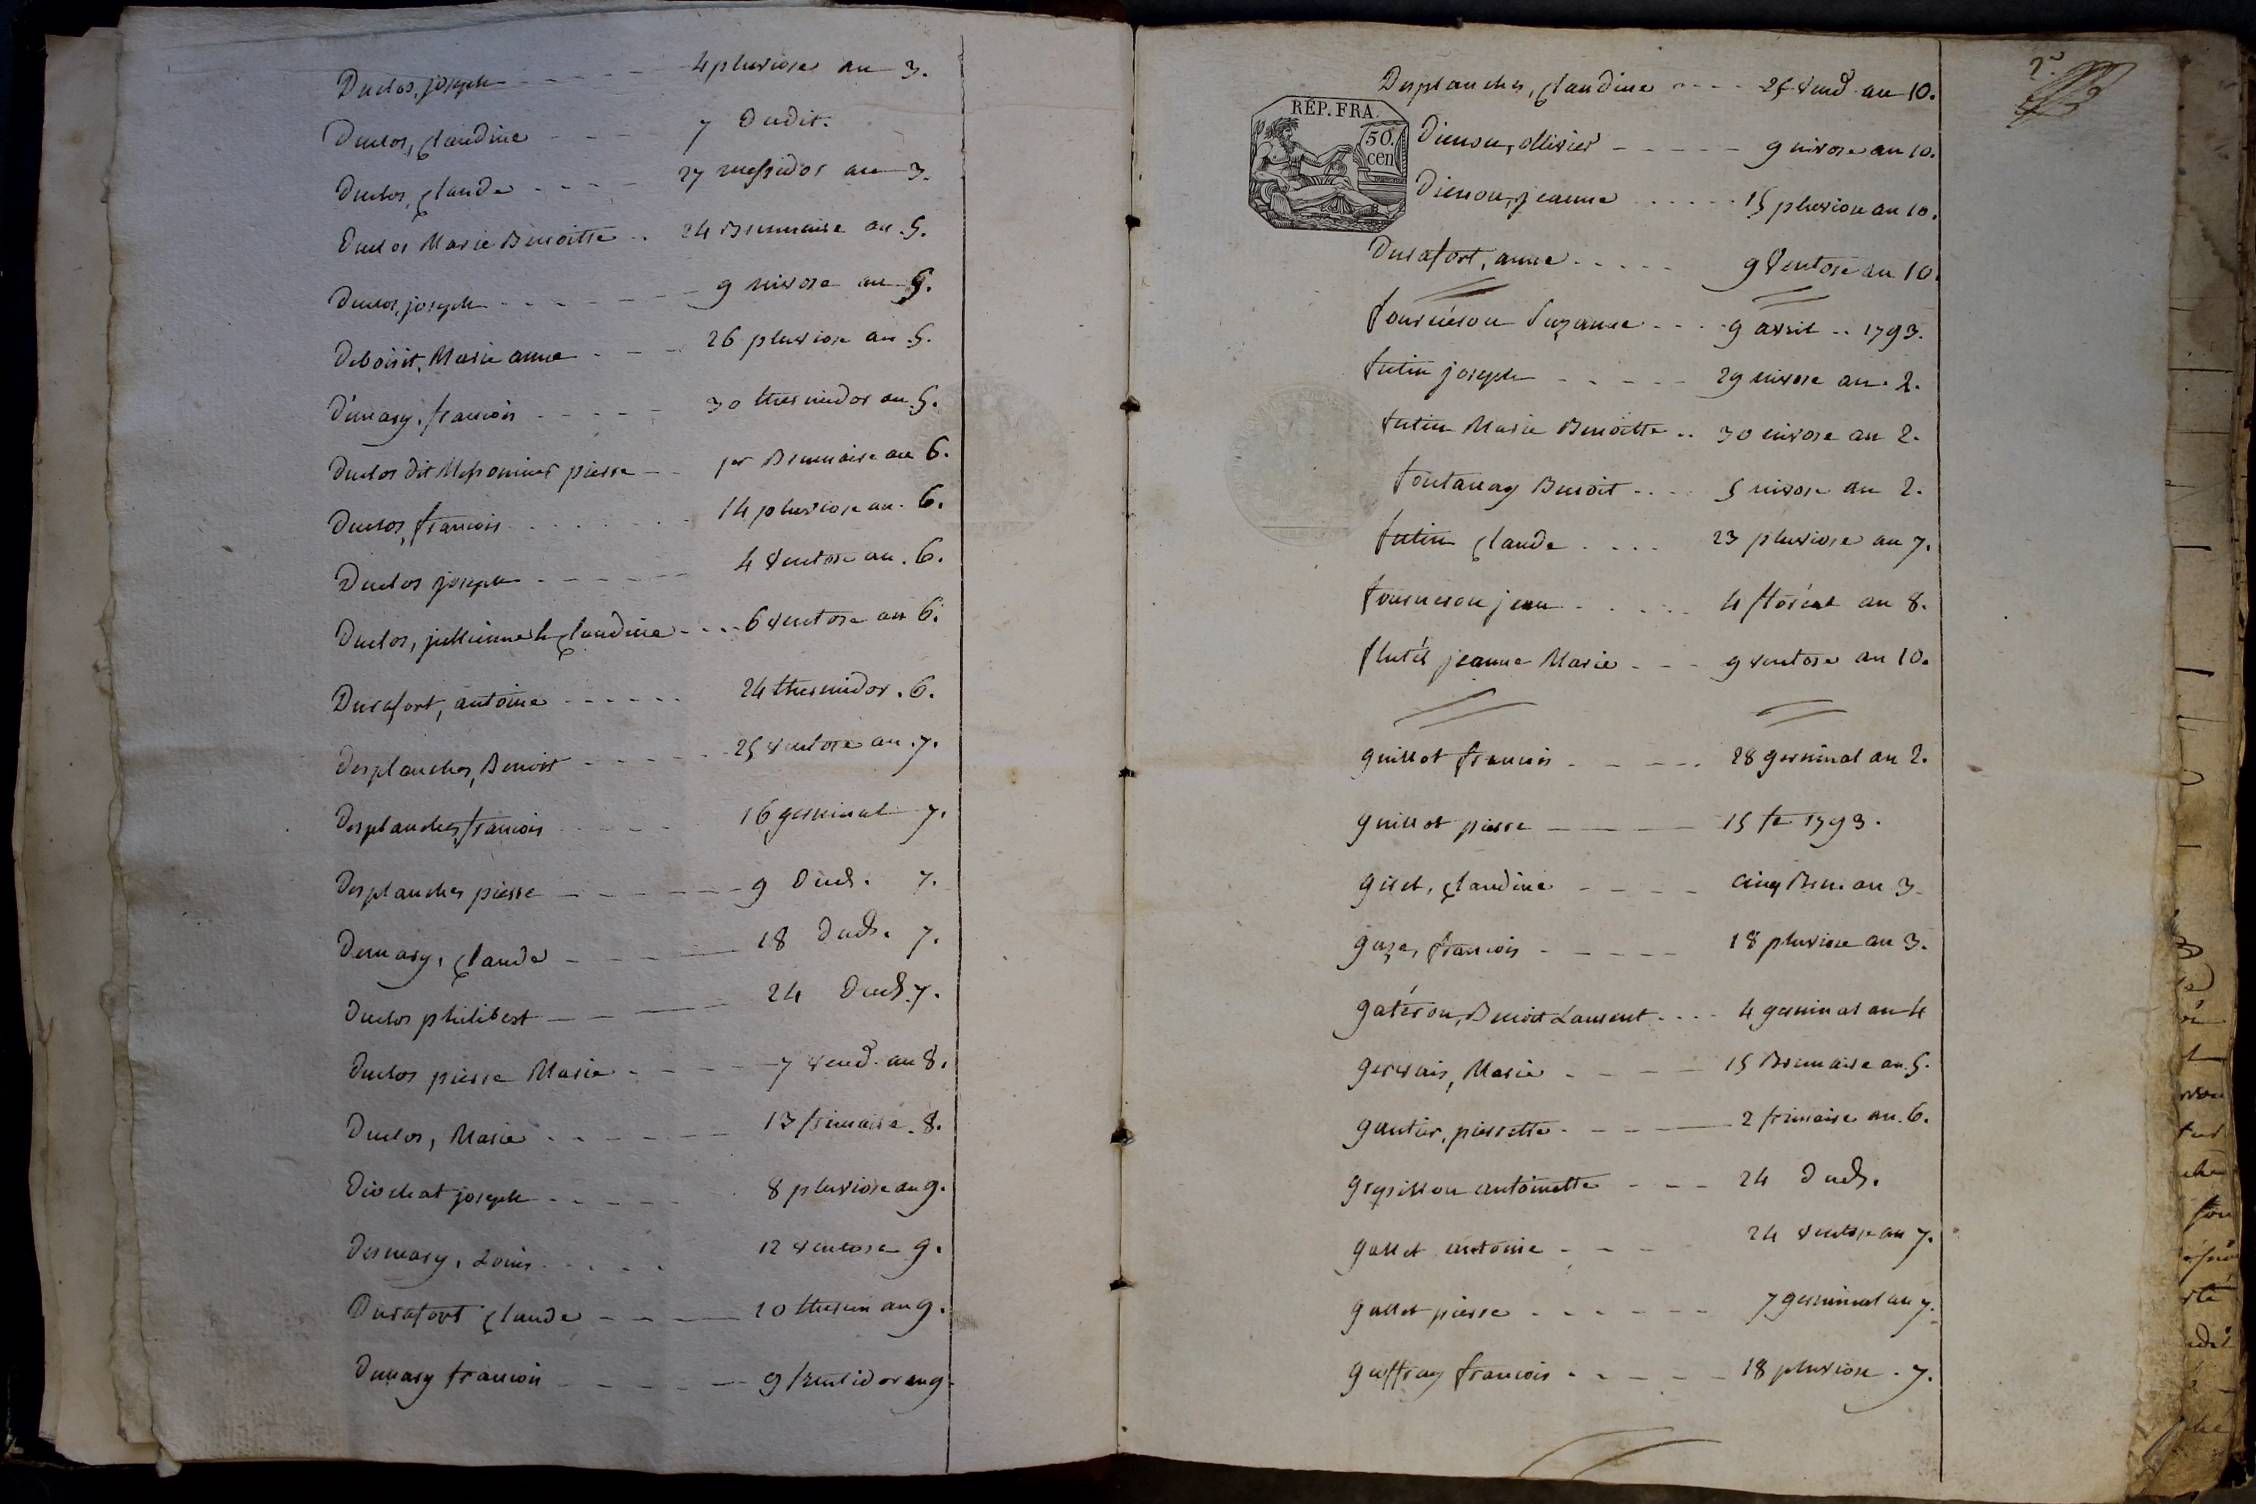 Duclos, joseph - - - - - 4 pluviose an 3.
Duclos, claudine - - - 7 dudit.
Duclos, claude - - - - 27 messidor an 3.
Duclos Marie Benoitte . . 24 Brumaire an . 5.
Duclos, joseph - - - - - - 9 nivose an 5.
Deboisit, Marie anne - - - 26 pluviose an . 5.
Démary, francois - - - - - 30 thermidor an . 5.
Duclos dit Messonnier pierre - - 1er Brumaire an 6.
Duclos, francois . . . . . . . 14 pluviose an . 6.
Duclos joseph - - - - - - 4 ventose an . 6.
Duclos, jullienne & claudine - - - 6 ventose an 6.
Durafort, antoine - - - - - - 24 thermidor . 6.
Desplanches, Benoit - - - - - 25 ventose an . 7.
Desplanches, francois - - - - - 16 germinal 7.
Desplanches pierre - - - - - - 9 dud. 7.
Demary, claude - - - - - 18 dud. 7.
Duclos philibert - - - 24 dud. 7.
Duclos pierre Marie - - - - 7 vend. an 8.
Duclos, Marie - - - - - - 13 frimaire . 8.
Diochat joseph - - - - - 8 pluviose an 9.
Desmary, Louis . . . . . 12 ventose 9.
Durafort claude - - - - 10 thermi an 9.
Dumary francois - - - - - 9 fructidor an 9.
2e.
Desplanches, claudine - - - - 25 vend. an 10.
RÉP. FRA.
50.
cen
Dienou, ollivier - - - - - 9 nivose an 10.
Dienou, jeanne . . . . . 15 pluviose an 10.
Durafort, anne . . . . . 9 Ventose an 10.
fournéson Suzanne - - - - 9 avril . . 1793.
futin joseph - - - - - 29 nivose an . 2.
futin Marie Benoitte . . 30 nivose an 2.
fontanay Benoit . . . . 5 nivose an 2.
futin claude . . . . 23 pluviose an 7.
fourneson jean . . . . . 4 floréal an 8.
flutél jeanne Marie - - - 9 ventose an 10.
guillot francois - - - - - 28 germinal an 2.
guillot pierre - - - - 15 fr 1793.
giset, claudine - - - - cinq Brum. an 3.
guze, francois - - - - - 18 pluviose an 3.
gatéron, Benoit Laurent . . . . 4 germinal an 4
gervais, Marie - - - - 15 Brumaire an . 5.
gautier, pierrette - - - - - 2 frimaire an . 6.
grysillon antoinette - - - 24 dud.
gallet antoine - - - 24 ventose an 7.
gallet pierre - - - - - - 7 germinal an 7.
geoffray francois - - - - - 18 pluviose . 7.